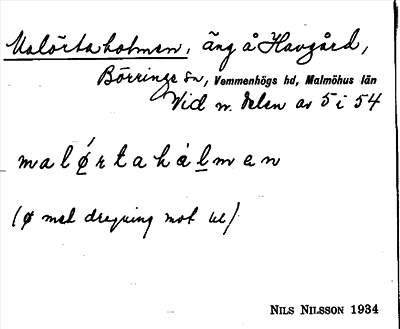 Malörtaholmen, äng å Havgård,
Börringe sn, Vemmenhögs hd, Malmöhus län
Vid n. delen av 5 i 54
malǿrtahålmen
(ø med dragning mot œ)
NILS NILSSON 1934